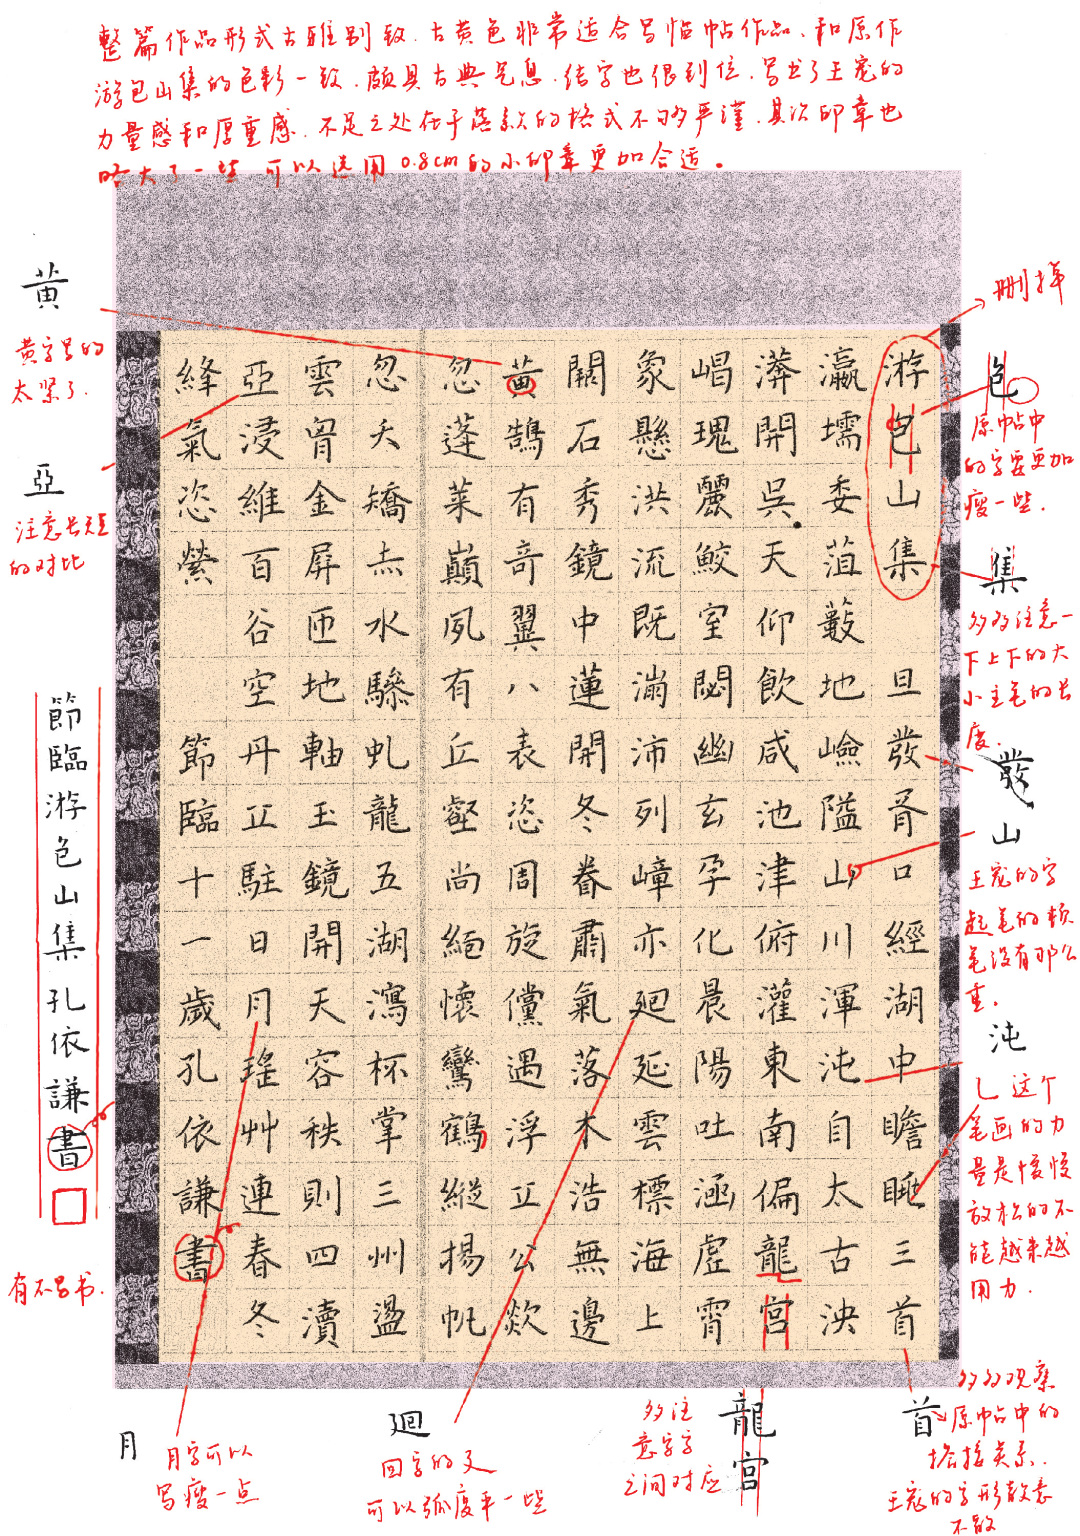 整篇作品形式古雅别致.古黄色非常适合写临帖作品、和原作
游包山集的色彩一致.颇具古典气息.结字也很到位.写出了王宠的
力量感和厚重感.不足之处在于落款的格式不够严谨.其次印章也
略大了一些 可以选用0.8cm的小印章更加合适。
删掉
包
原帖中
的字要更加
瘦一些.
集
多多注意一
下上下的大
小主笔的长
度.
發
山
王宠的字
起笔的顿
笔没有那么
重.
沌
乚这个
笔画的力
量是慢慢
放松的不
能越来越
用力.
首
多多观察
原帖中的
搭接关系.
王宠的字形散意
不散
游包山集 旦發胥口經湖中瞻眺三首
瀛壖委菹藪地嶮隘山川渾沌自太古泱
漭開吳天仰飲咸池津俯灌東南偏龍宮
崐瑰麗鮫室閟幽玄孕化晨陽吐涵虛霄
象懸洪流既滈沛列嶂亦廻延雲標海上
闕石秀鏡中蓮開冬眷肅氣落木浩無邊
黄鵠有奇翼八表恣周旋儻遇浮丘公歘
忽蓬萊巔夙有丘壑尚緬懷鸞鶴縱揚帆
忽夭矯赤水驂虬龍五湖瀉杯掌三州盪
雲胷金屏匝地軸玉鏡開天容秩則四瀆
亞浸維百谷空丹丘駐日月瑤艸連春冬
絳氣恣縈 節臨十一歲孔依謙書
黄
黄字写的
太紧了.
亞
注意长短
的对比
節臨游包山集 孔依謙書
有不写书.
月
月字可以
写瘦一点
廻
回字的廴
可以弧度平一些
多注
意字字
之间对应
龍
宮